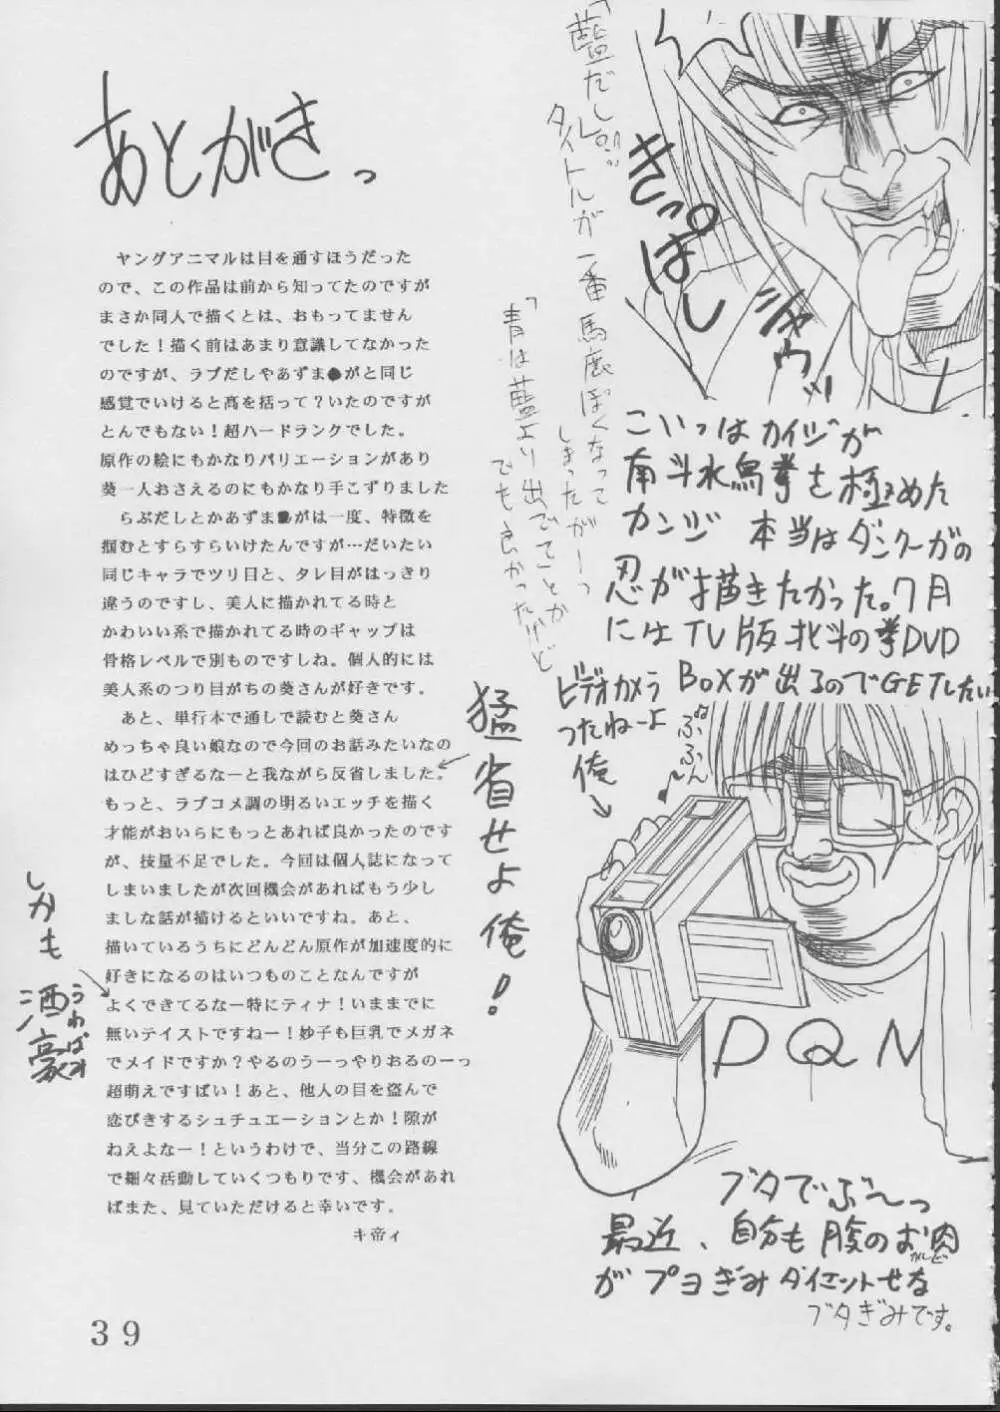 あとがきっ
ヤングアニマルは目を通すほうだった
ので、この作品は前から知ってたのですが
まさか同人で描くとは、おもってません
でした！描く前はあまり意識してなかった
のですが、ラブだしやあずま●がと同じ
感覚でいけると高を括って？いたのですが
とんでもない！超ハードランクでした。
原作の絵にもかなりバリエーションがあり
葵一人おさえるのにもかなり手こずりました
らぶだしとかあずま●がは一度、特徴を
掴むとすらすらいけたんですが…だいたい
同じキャラでツリ目と、タレ目がはっきり
違うのですし、美人に描かれてる時と
かわいい系で描かれてる時のギャップは
骨格レベルで別ものですしね。個人的には
美人系のつり目がちの葵さんが好きです。
あと、単行本で通しで読むと葵さん
めっちゃ良い娘なので今回のお話みたいなの
はひどすぎるなーと我ながら反省しました。
もっと、ラブコメ調の明るいエッチを描く
才能がおいらにもっとあれば良かったのです
が、技量不足でした。今回は個人誌になって
しまいましたが次回機会があればもう少し
ましな話が描けるといいですね。あと、
描いているうちにどんどん原作が加速度的に
好きになるのはいつものことなんですが
よくできてるなー特にティナ！いままでに
無いテイストですねー！妙子も巨乳でメガネ
でメイドですか？やるのうーっやりおるのーっ
超萌えですばい！あと、他人の目を盗んで
恋びきするシュチュエーションとか！隙が
ねえよなー！というわけで、当分この路線
で細々活動していくつもりです、機会があれ
ばまた、見ていただけると幸いです。
キ帝ィ
しかも
酒豪
うわばみ
猛省せよ俺！
「藍だし!!」
タイトルが一番馬鹿ぽくなって
しまったがーっ
「青は藍より出でてとか
でも良かったけど
きっぱし
シャウッ
こいつはカイジが
南斗水鳥拳を極めた
カンジ 本当はダンクーガの
忍が描きたかった。7月
にはTV版北斗の拳DVD
BOXが出るのでGETしたい
ビデオカメラ
つたねーよ
俺
ぶふん
DQN
ブタでぶ～っ
最近、自分も腹のお肉
がプヨぎみダイエットせな
ブタぎみです。
39